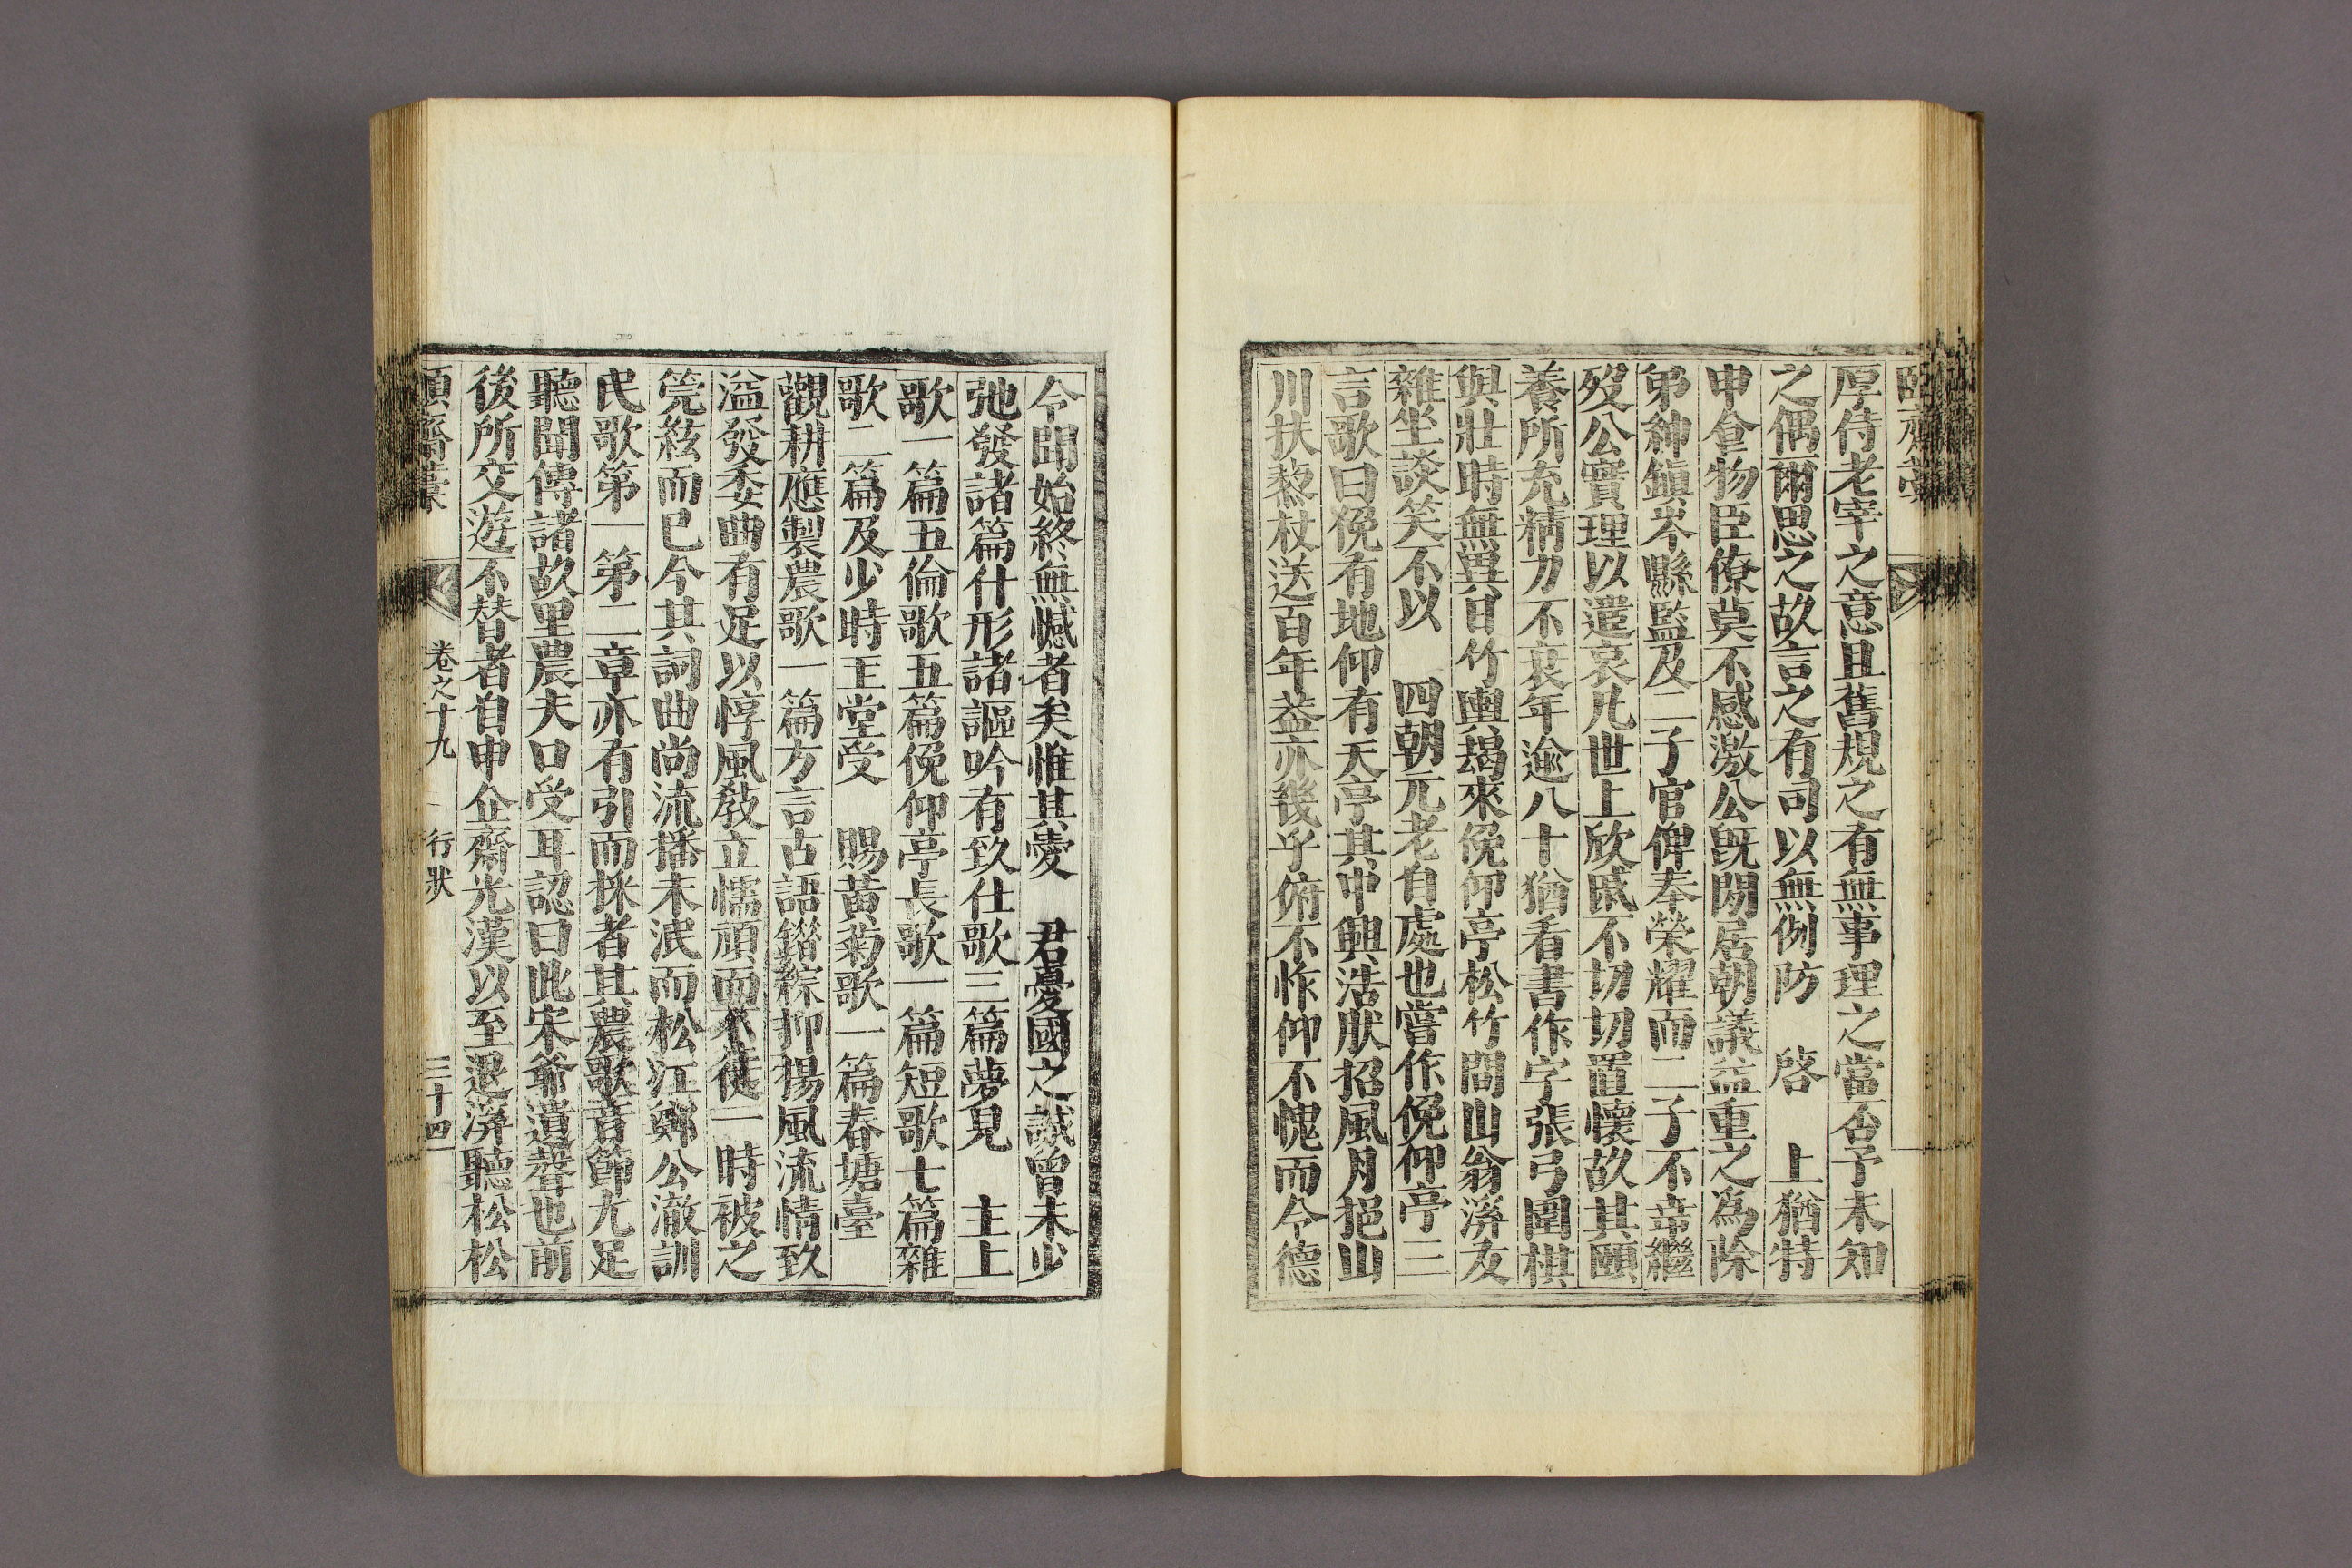 厚待老宰之意且舊規之有無事理之當否予未知
之偶爾思之故言之有司以無例防 啓 上猶特
申食物臣僚莫不感激公旣閑居朝議益重之爲除
弟紳鎭岑縣監及二子官俾奉榮耀而二子不幸繼
歿公實理以遣哀凡世上欣戚不切切置懷故其頤
養所充精力不衰年逾八十猶看書作字張弓圍棋
與壯時無異日竹輿朅來俛仰亭松竹間山翁溪友
雜坐談笑不以 四朝元老自處也嘗作俛仰亭三
言歌曰俛有地仰有天亭其中興浩然招風月挹山
川扶藜杖送百年益亦幾乎俯不怍仰不愧而令德
令聞始終無憾者矣惟其愛 君憂國之誠曾未少
弛發諸篇什形諸謳吟有致仕歌三篇夢見 主上
歌一篇五倫歌五篇俛仰亭長歌一篇短歌七篇雜
歌二篇及少時玉堂受 賜黃菊歌一篇春塘臺
觀耕應製農歌一篇方言古語錯綜抑揚風流情致
溢發委曲有足以惇風敎立懦頑而不徒一時被之
筦絃而已今其詞曲尙流播未泯而松江鄭公澈訓
民歌第一第二章亦有引而採者其農歌音節尤足
聽聞傳諸故里農夫口受耳認曰此宋爺遺聲也前
後所交遊不替者自申企齋光漢以至退溪聽松松
頤齋藁 卷之十九 行狀 三十四